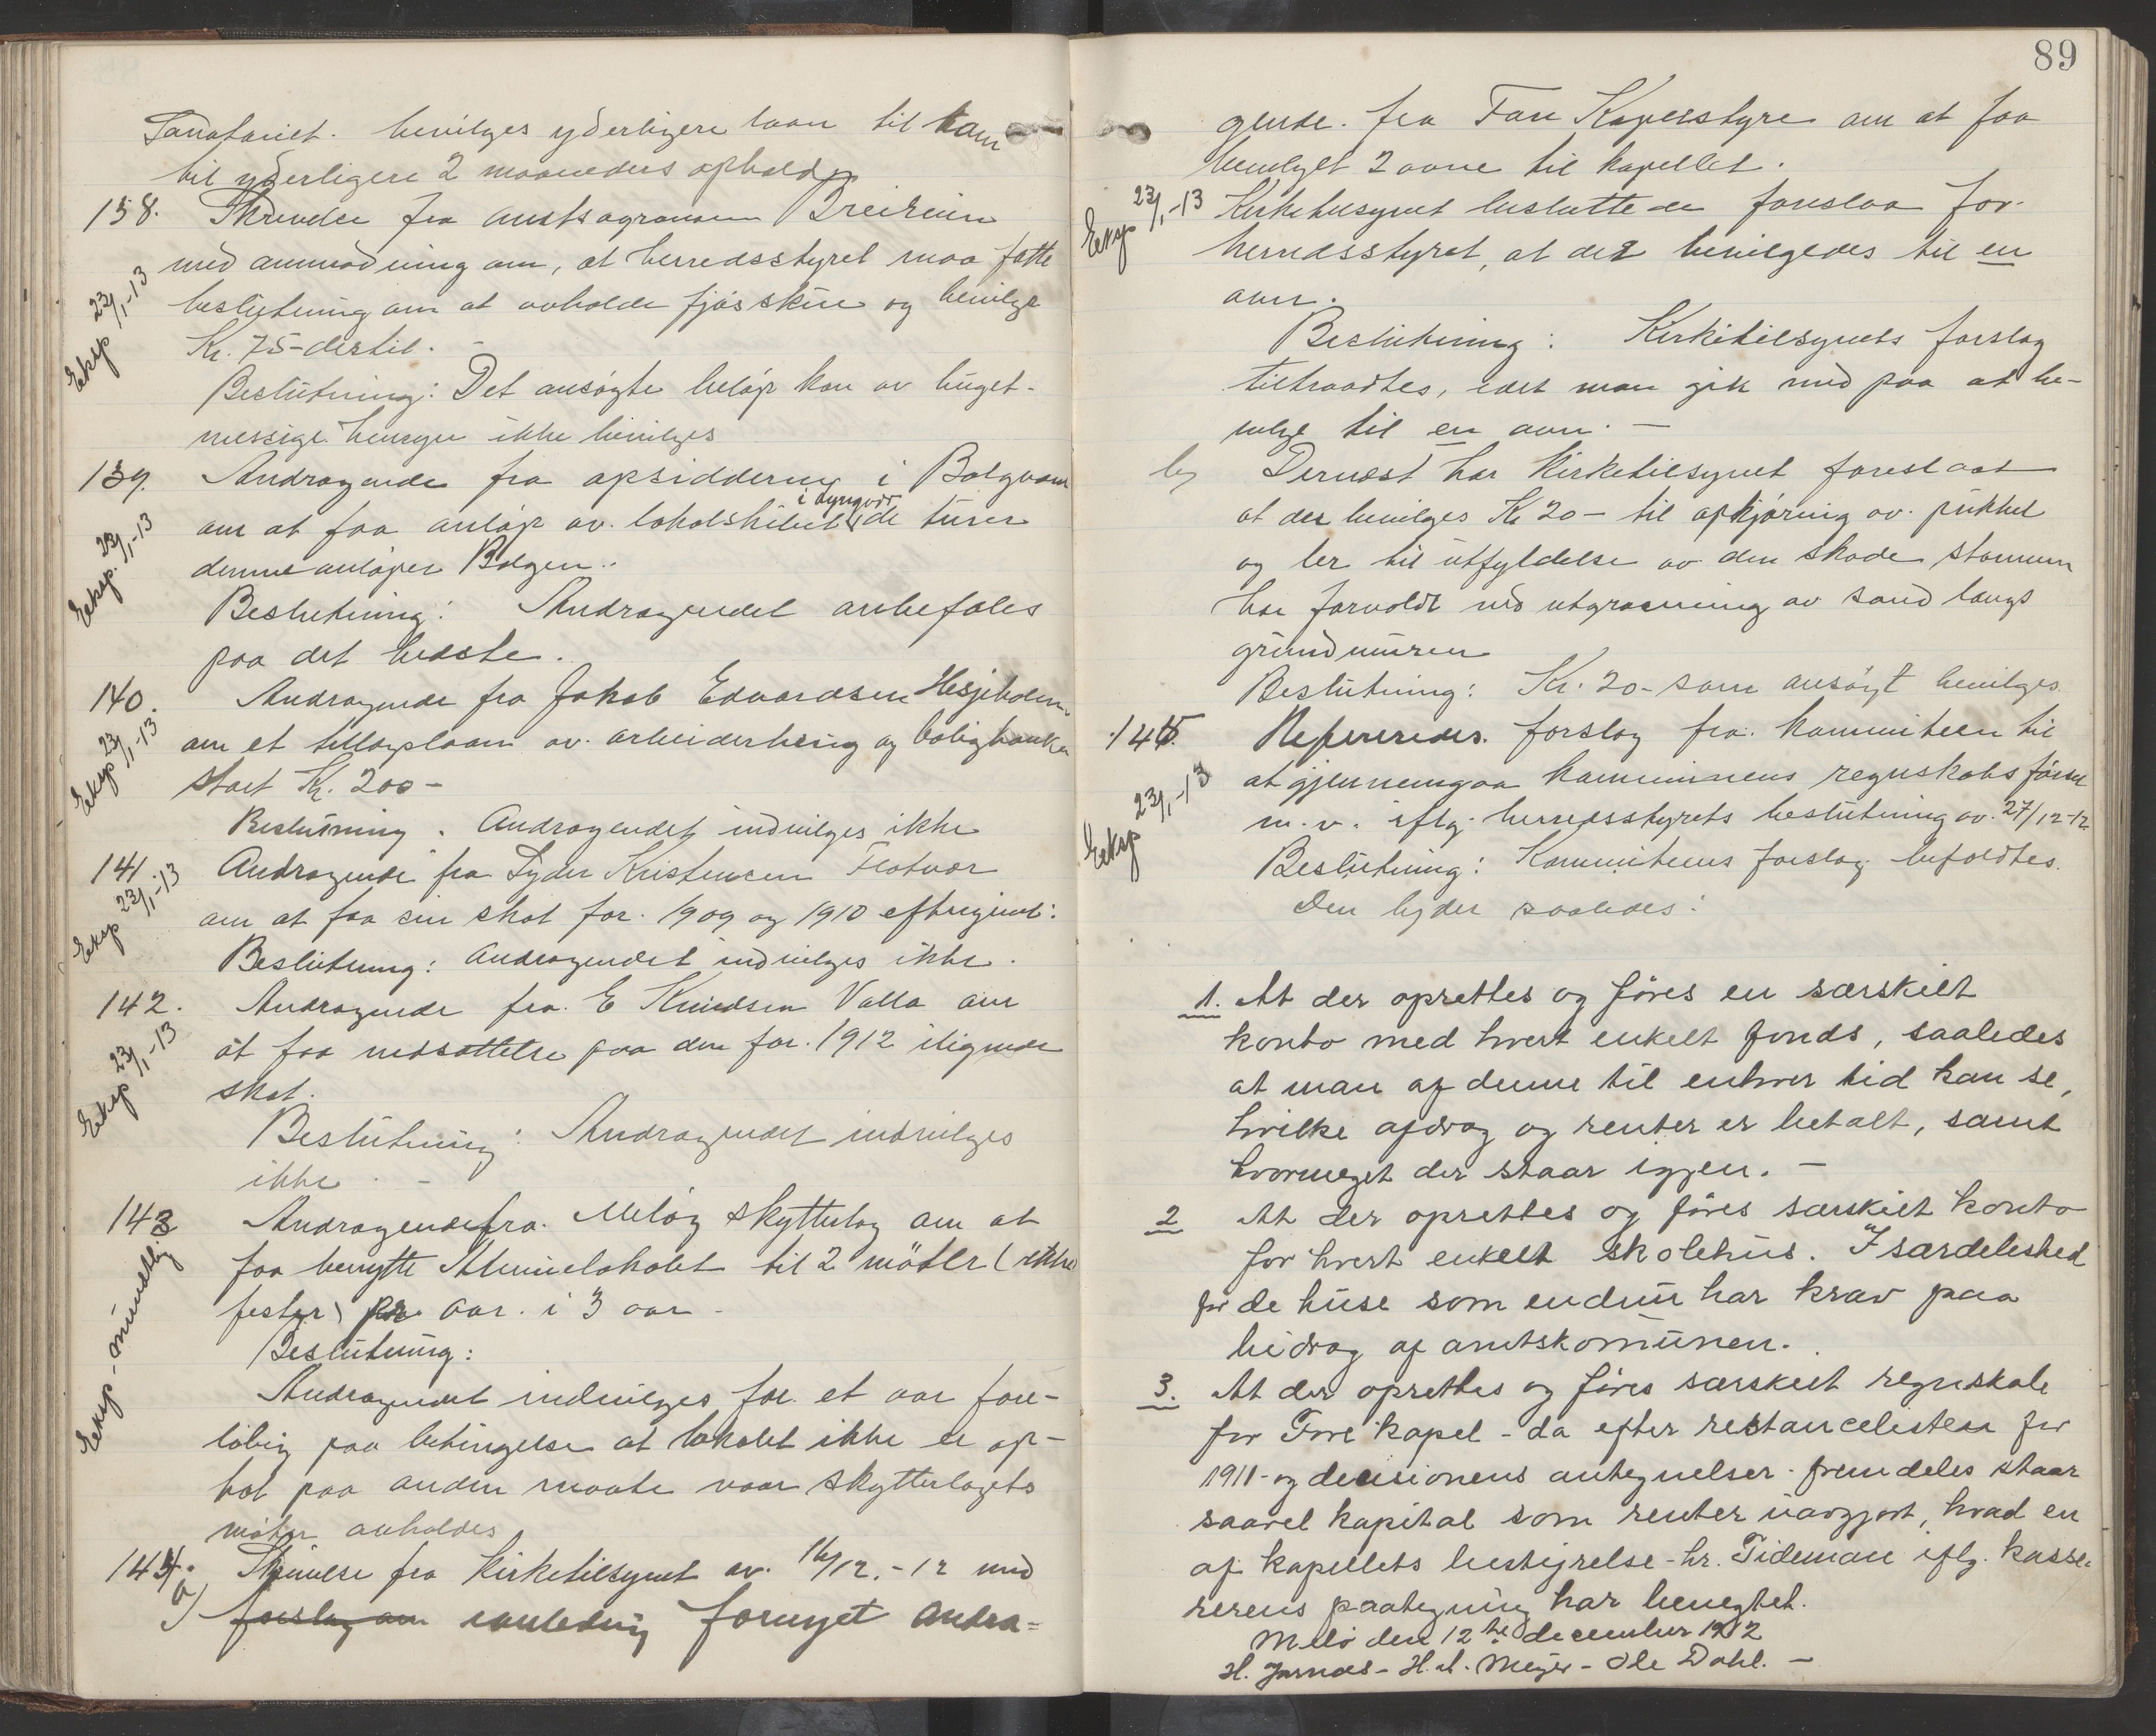 Sanatoriet. bevilges yderligere laan til ham
til yderligere 2 maaneders ophold
138. Skrivelse fra amtsagronom Breirem
med anmodning om, at herredsstyret maa fatte
beslutning om at avholde fjøsskue og bevilge
Eksp 23/1-13
Kr. 75- dertil. -
Beslutning: Det ansøgte beløp kan av buget-
messige hensyn ikke bevilges
139. Andragende fra opsiddere i Bolgvaan
i dyngvdr
om at faa anløp av lokalskibet de turer
denne anløper Bolgen..
Eksp. 23/1-13
Beslutning: Andragendet anbefales
paa det bedste.
140. Andragende fra Jakob Edvardsen Hesjeholm
om et tillægslaan av arbeiderbrug og boligbanken
Eksp 23/1-13
stort Kr. 200-
Beslutning. Andragendet indvilges ikke
141. Andragende fra Lyder Kristensen Flatvær
om at faa sin skat for 1909 og 1910 eftergivet.
Eksp 23/1-13
Beslutning: Andragendet indvilges ikke.
142. Andragende fra E Knudsen Valla om
at faa nedsættelse paa den for 1912 ilignede
Eksp 23/1-13
skat.
Beslutning: Andragendet indvilges
ikke. -
143 Andragende fra Meløy skytterlag om at
faa benytte Kommunelokalet til 2 møter (ikke
fester) pr. aar. i 3 aar -
Beslutning:
Eksp - mundtlig
Andragendet indvilges for et aar fore-
løbig paa betingelse at lokalet ikke er op-
tat paa anden maate naar skytterlagets
møter avholdes
144. Skrivelse fra Kirketilsynet av 16/12.-12 med
a) forslag om ianledning fornyet andra=
89
gende. fra Fore Kapelstyre om at faa
bevilget 2 ovne til kapellet.
Eksp 23/1-13
Kirketilsynet besluttede foreslaa for
herredsstyret, at det bevilgedes til en
ovn.
Beslutning: Kirketilsynets forslag
tiltraadtes, idet man gik med paa at be-
vilge til en ovn. -
b) Dernæst har Kirketilsynet foreslaat
at der bevilges Kr 20- til opkjøring av pukkel
og ler til utfyldelse av den skade stormen
har forvoldt ved utgravning av sand langs
grundmuren
Beslutning: Kr. 20- som ansøgt bevilges.
145. Refereredes forslag fra kommiteen til
at gjennemgaa kommunens regnskabsførsel
m.v. iflg. herredsstyrets beslutning av 27/12-12
Eksp 23/1-13
Beslutning: Kommiteens forslag befoldtes.
Den lyder saaledes:
1. At der oprettes og føres en særskilt
konto med hvert enkelt fonds, saaledes
at man af denne til enhver tid kan se,
hvilke afdrag og renter er betalt, samt
hvormeget der staar igjen. -
2 At der oprettes og føres særskilt konto
for hvert enkelt skolehus. I særdeleshed
for de huse som endnu har krav paa
bidrag af amtskomunen.
3. At der oprettes og føres særskilt regnskab
for Fore kapel - da efter restancelisten for
1911- og decisionens antegnelser fremdeles staar
saavel kapital som renter uavgjort, hvad en
af kapellets bestyrelse - hr. Tideman iflg. kasse-
rerens paategning har benegtet.
Melø den 12te december 1912
H. Jarnæs - H. A. Meyer - Ole Dahl. -